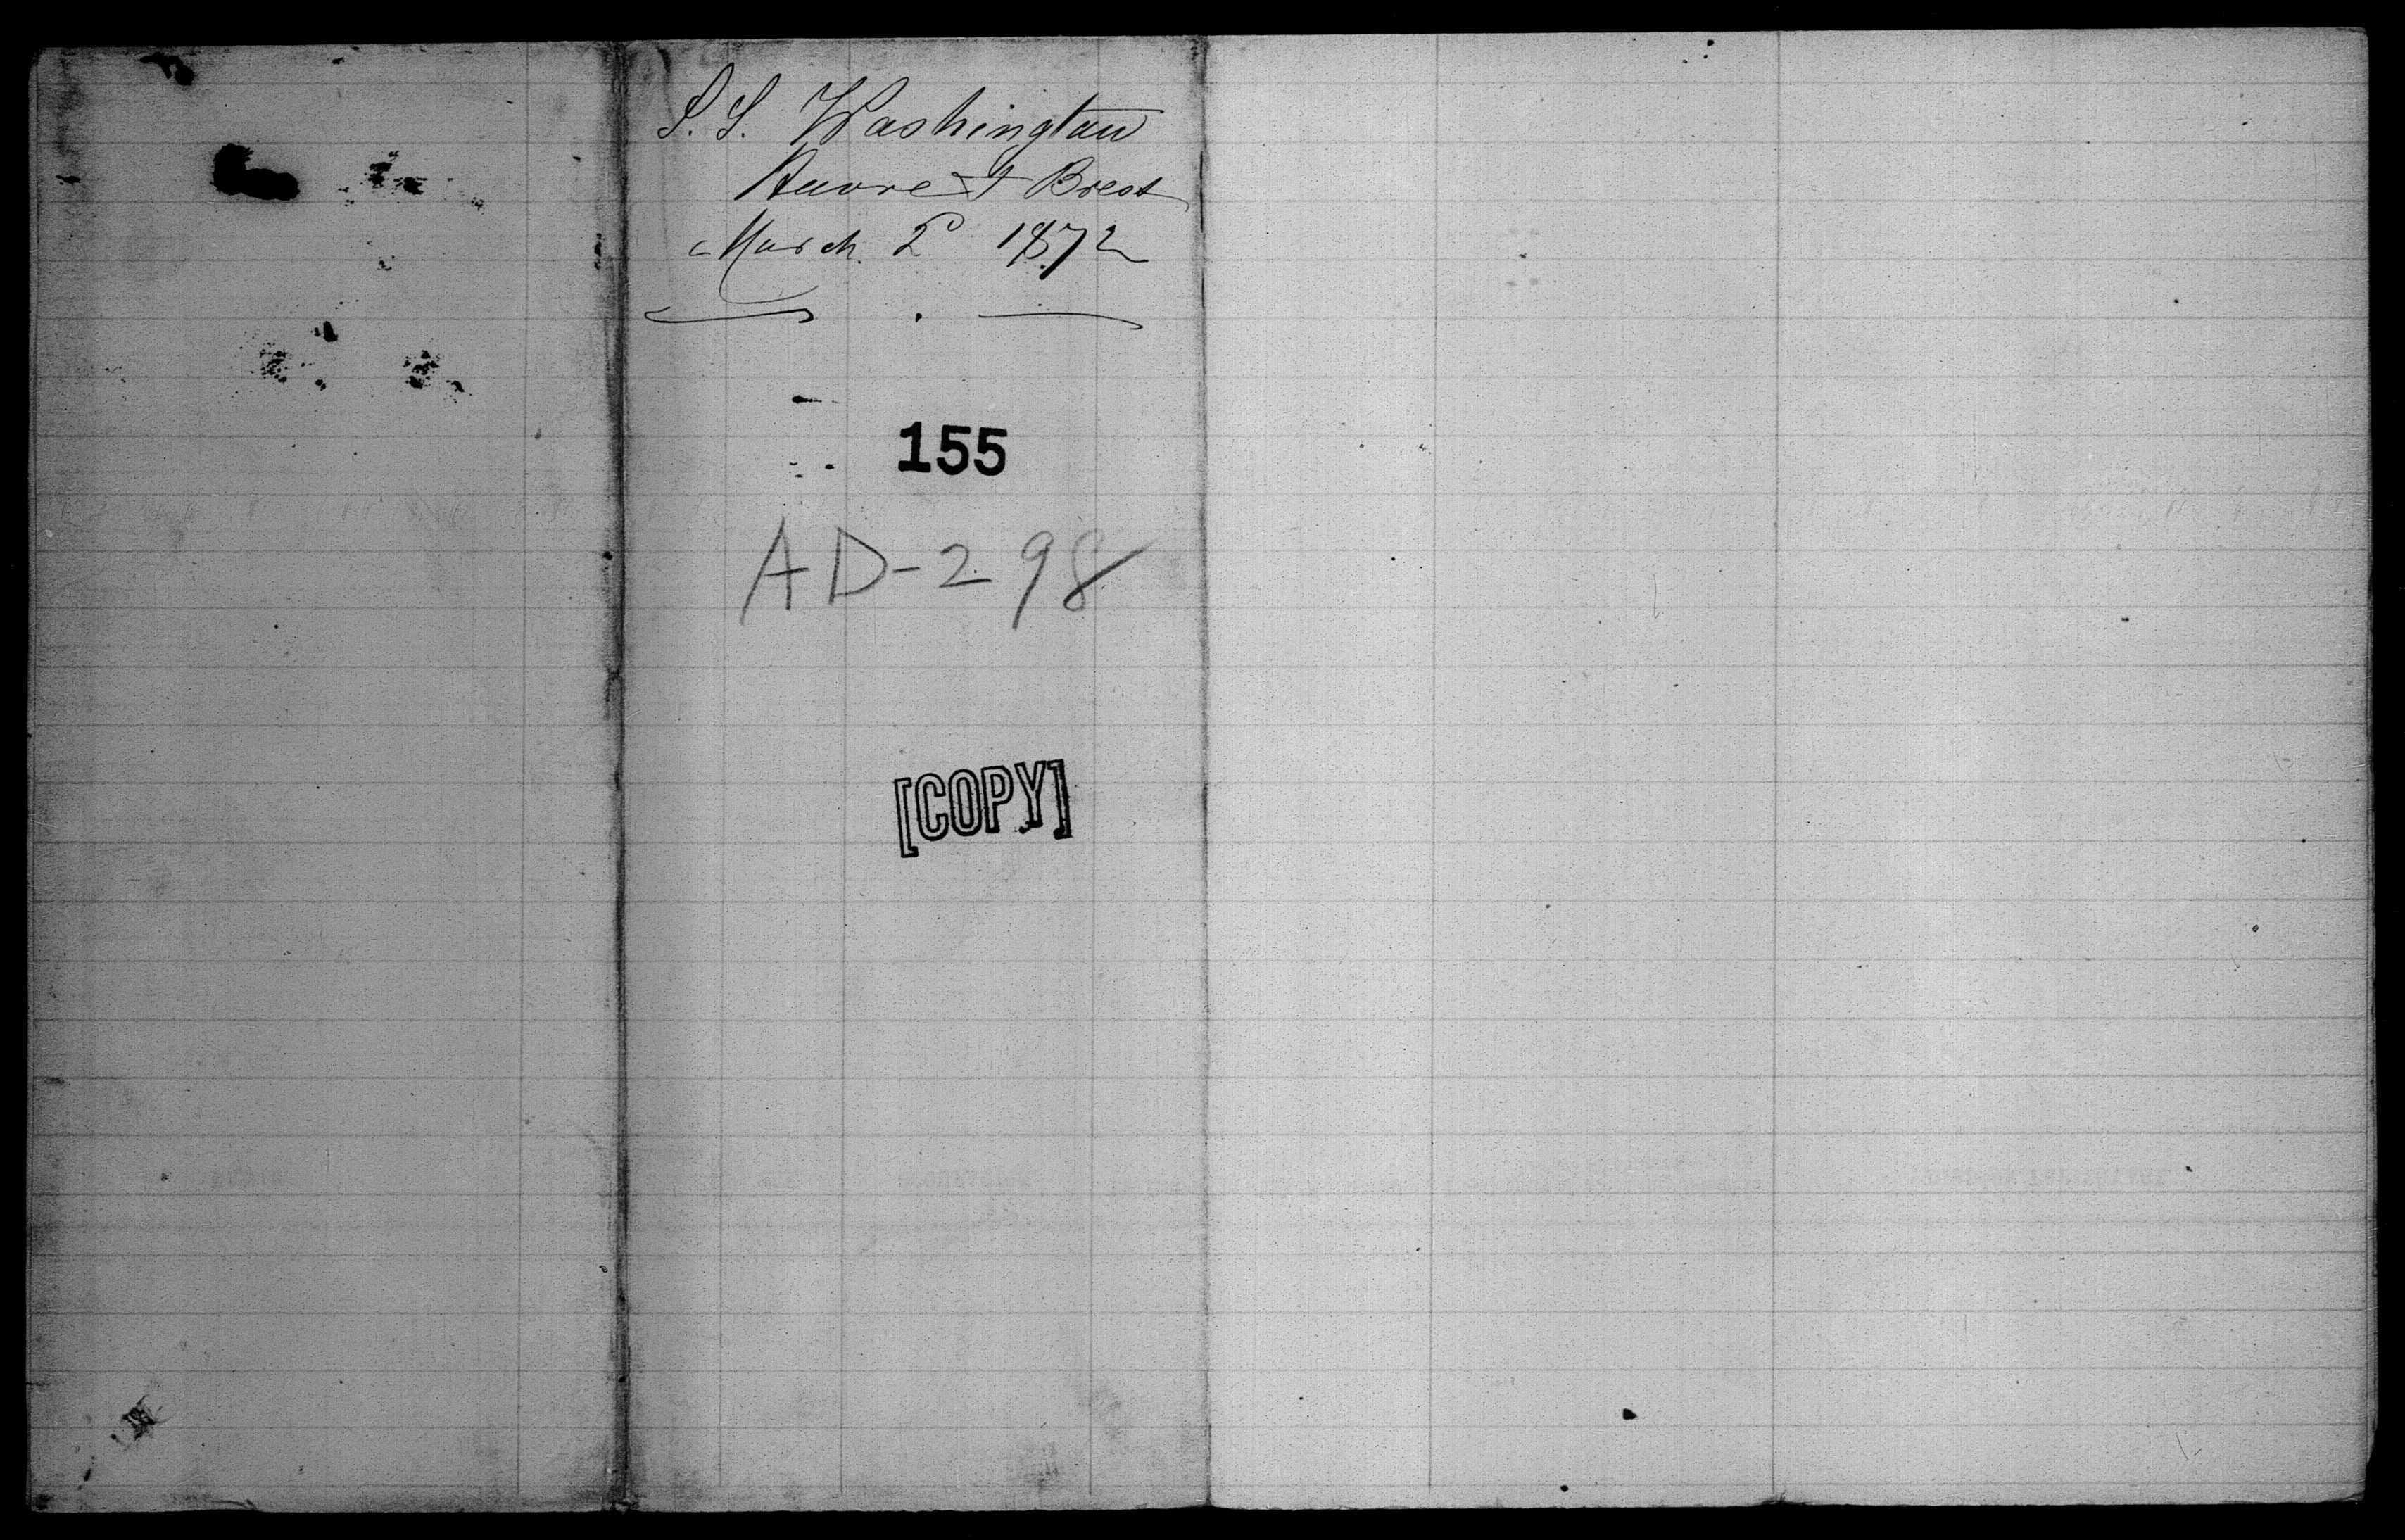 S. S. Washington
Havre & Brest
March. 2 1872
155
AD-298
[COPY]